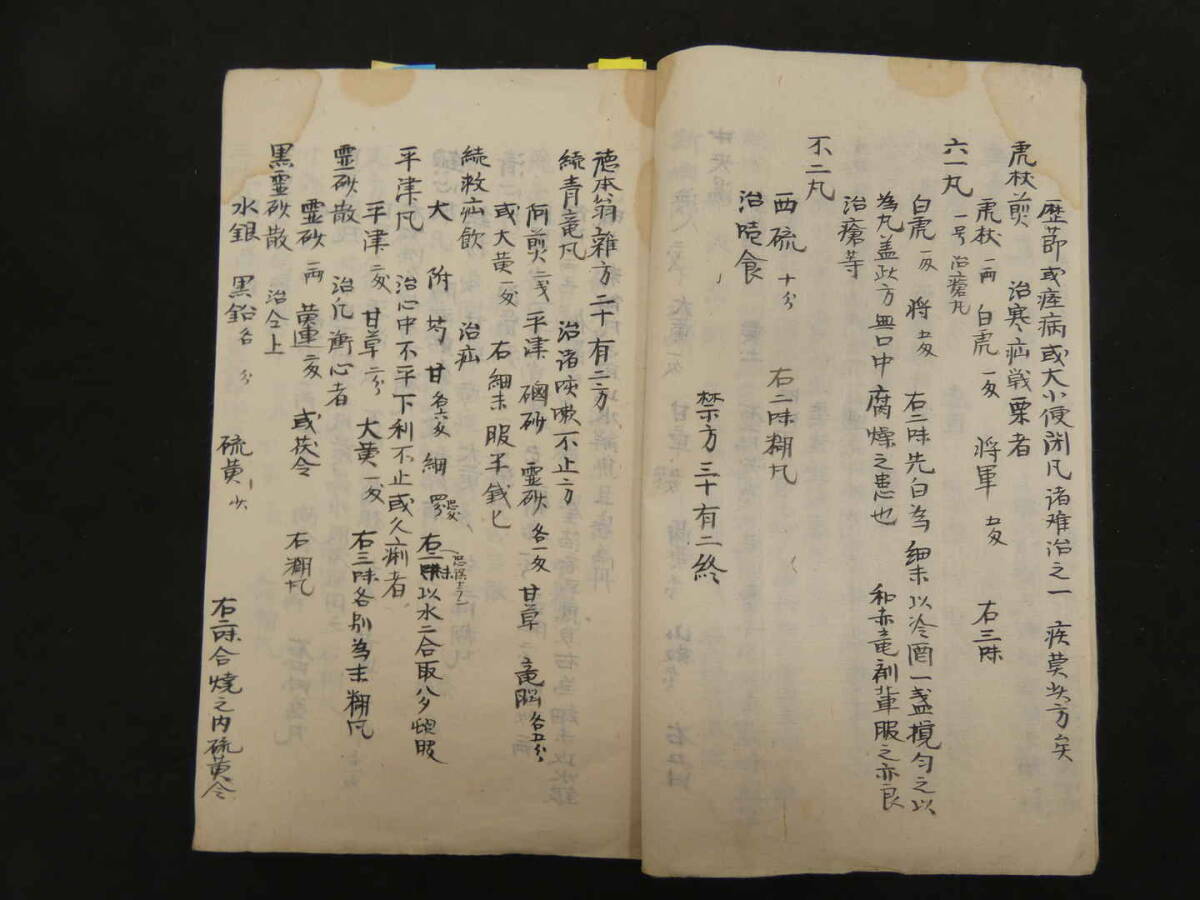 歴節或痓病或大小便閉凡诸难治之一 疾莫如方矣
虎杖煎 治寒疝戦栗者
虎杖 一両 白虎 一匁 将軍 五匁 右三味
六一丸 一号治瘡丸
白虎 一匁 将 五匁 右二味先白為細末以冷酒一盏攪匀之以
為丸盖此方無口中腐爛之患也 和赤竜剤軍服之亦良
治瘡等
不二丸
西硫 十分 右一味糊凡
治噎食
禁方三十有二終
徳本翁雑方二十有二方
続青竜凡 治诸咳嗽不止方
阿煎 二戈 平津 硇砂 霊砂 各一匁 甘草 竜脳 各五分
或大黄 一匁 右細末服半銭匕
続救疝飲 治疝
大 附 芍 甘 各六匁 細 右 味以水二合取八分煖服
平津凡 治心中不平下利不止或久痢者
平津 二匁 甘草 二分 大黄 一匁 右三味各别為末糊凡
霊砂散 治凢衝心者
霊砂 一両 黄連 二匁 或茯令 右糊凡
黒霊砂散 治仝上
水銀 黒鉛 各 分 硫黄 少 右二味合燒之内硫黄令